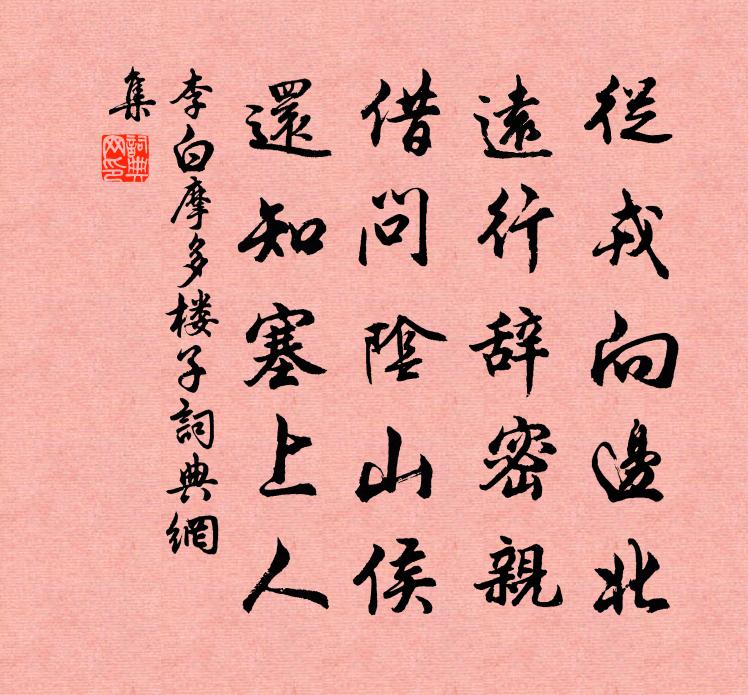 從戎向邊北
遠行辞密親
借問陰山侯
還知塞上人
李白摩多楼子詞典網
集
詞典网印